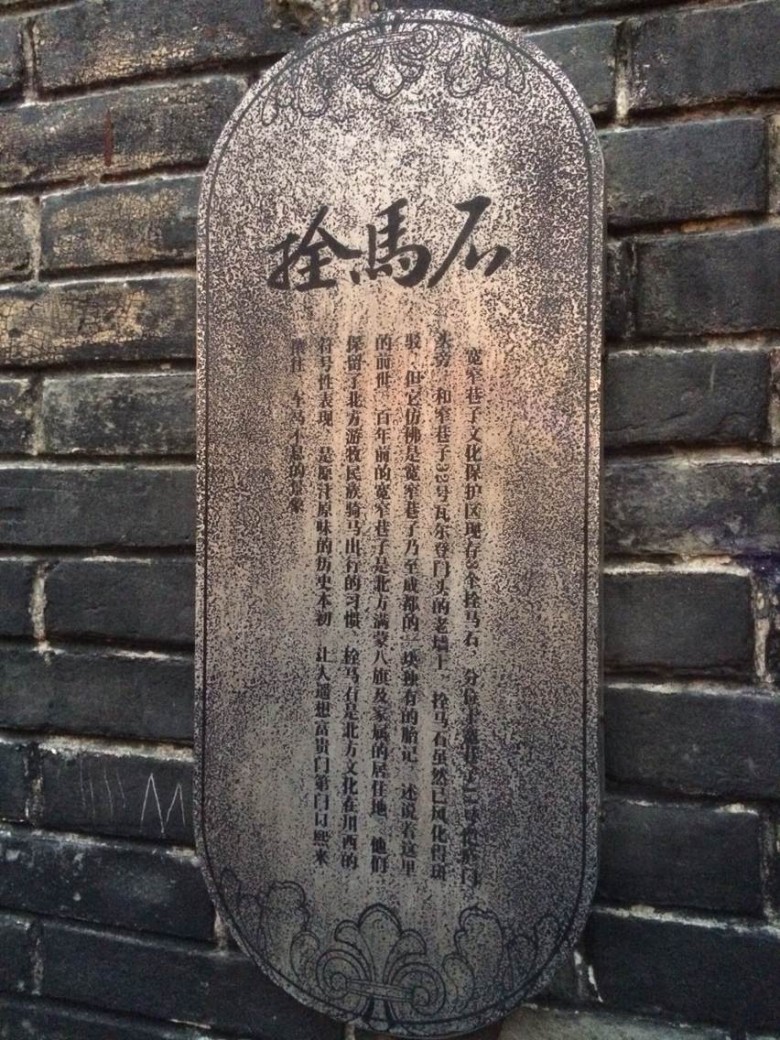 拴馬石
宽窄巷子文化保护区现存3个拴马石 分位于宽巷子11号恺庐门
头旁 和窄巷子32号瓦尔登门头的老墙上 拴马石虽然已风化得斑
驳 但它仿佛是宽窄巷子乃至成都的一块独有的胎记 述说着这里
的前世 百年前的宽窄巷子是北方满蒙八旗及家属的居住地 他们
保留了北方游牧民族骑马出行的习惯、拴马石是北方文化在川西的
符号性表现 是原汁原味的历史本初 让人遥想富贵门第门口熙来
攘往 车马不息的景象